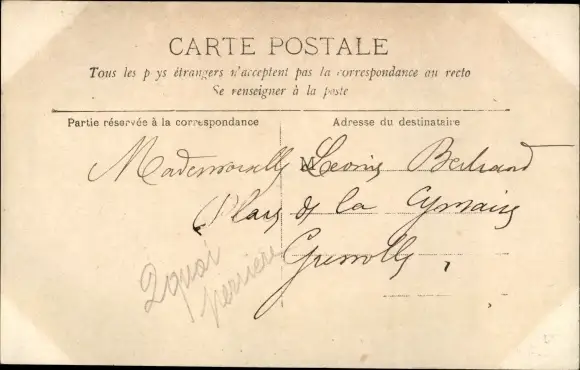 CARTE POSTALE
Tous les pays étrangers n'acceptent pas la correspondance au recto
Se renseigner à la poste
Partie réservée à la correspondance
Adresse du destinataire
Mademoiselle Leonie Bertrand
Place de la Cymaise
Grenoble,
2 quai
perriere